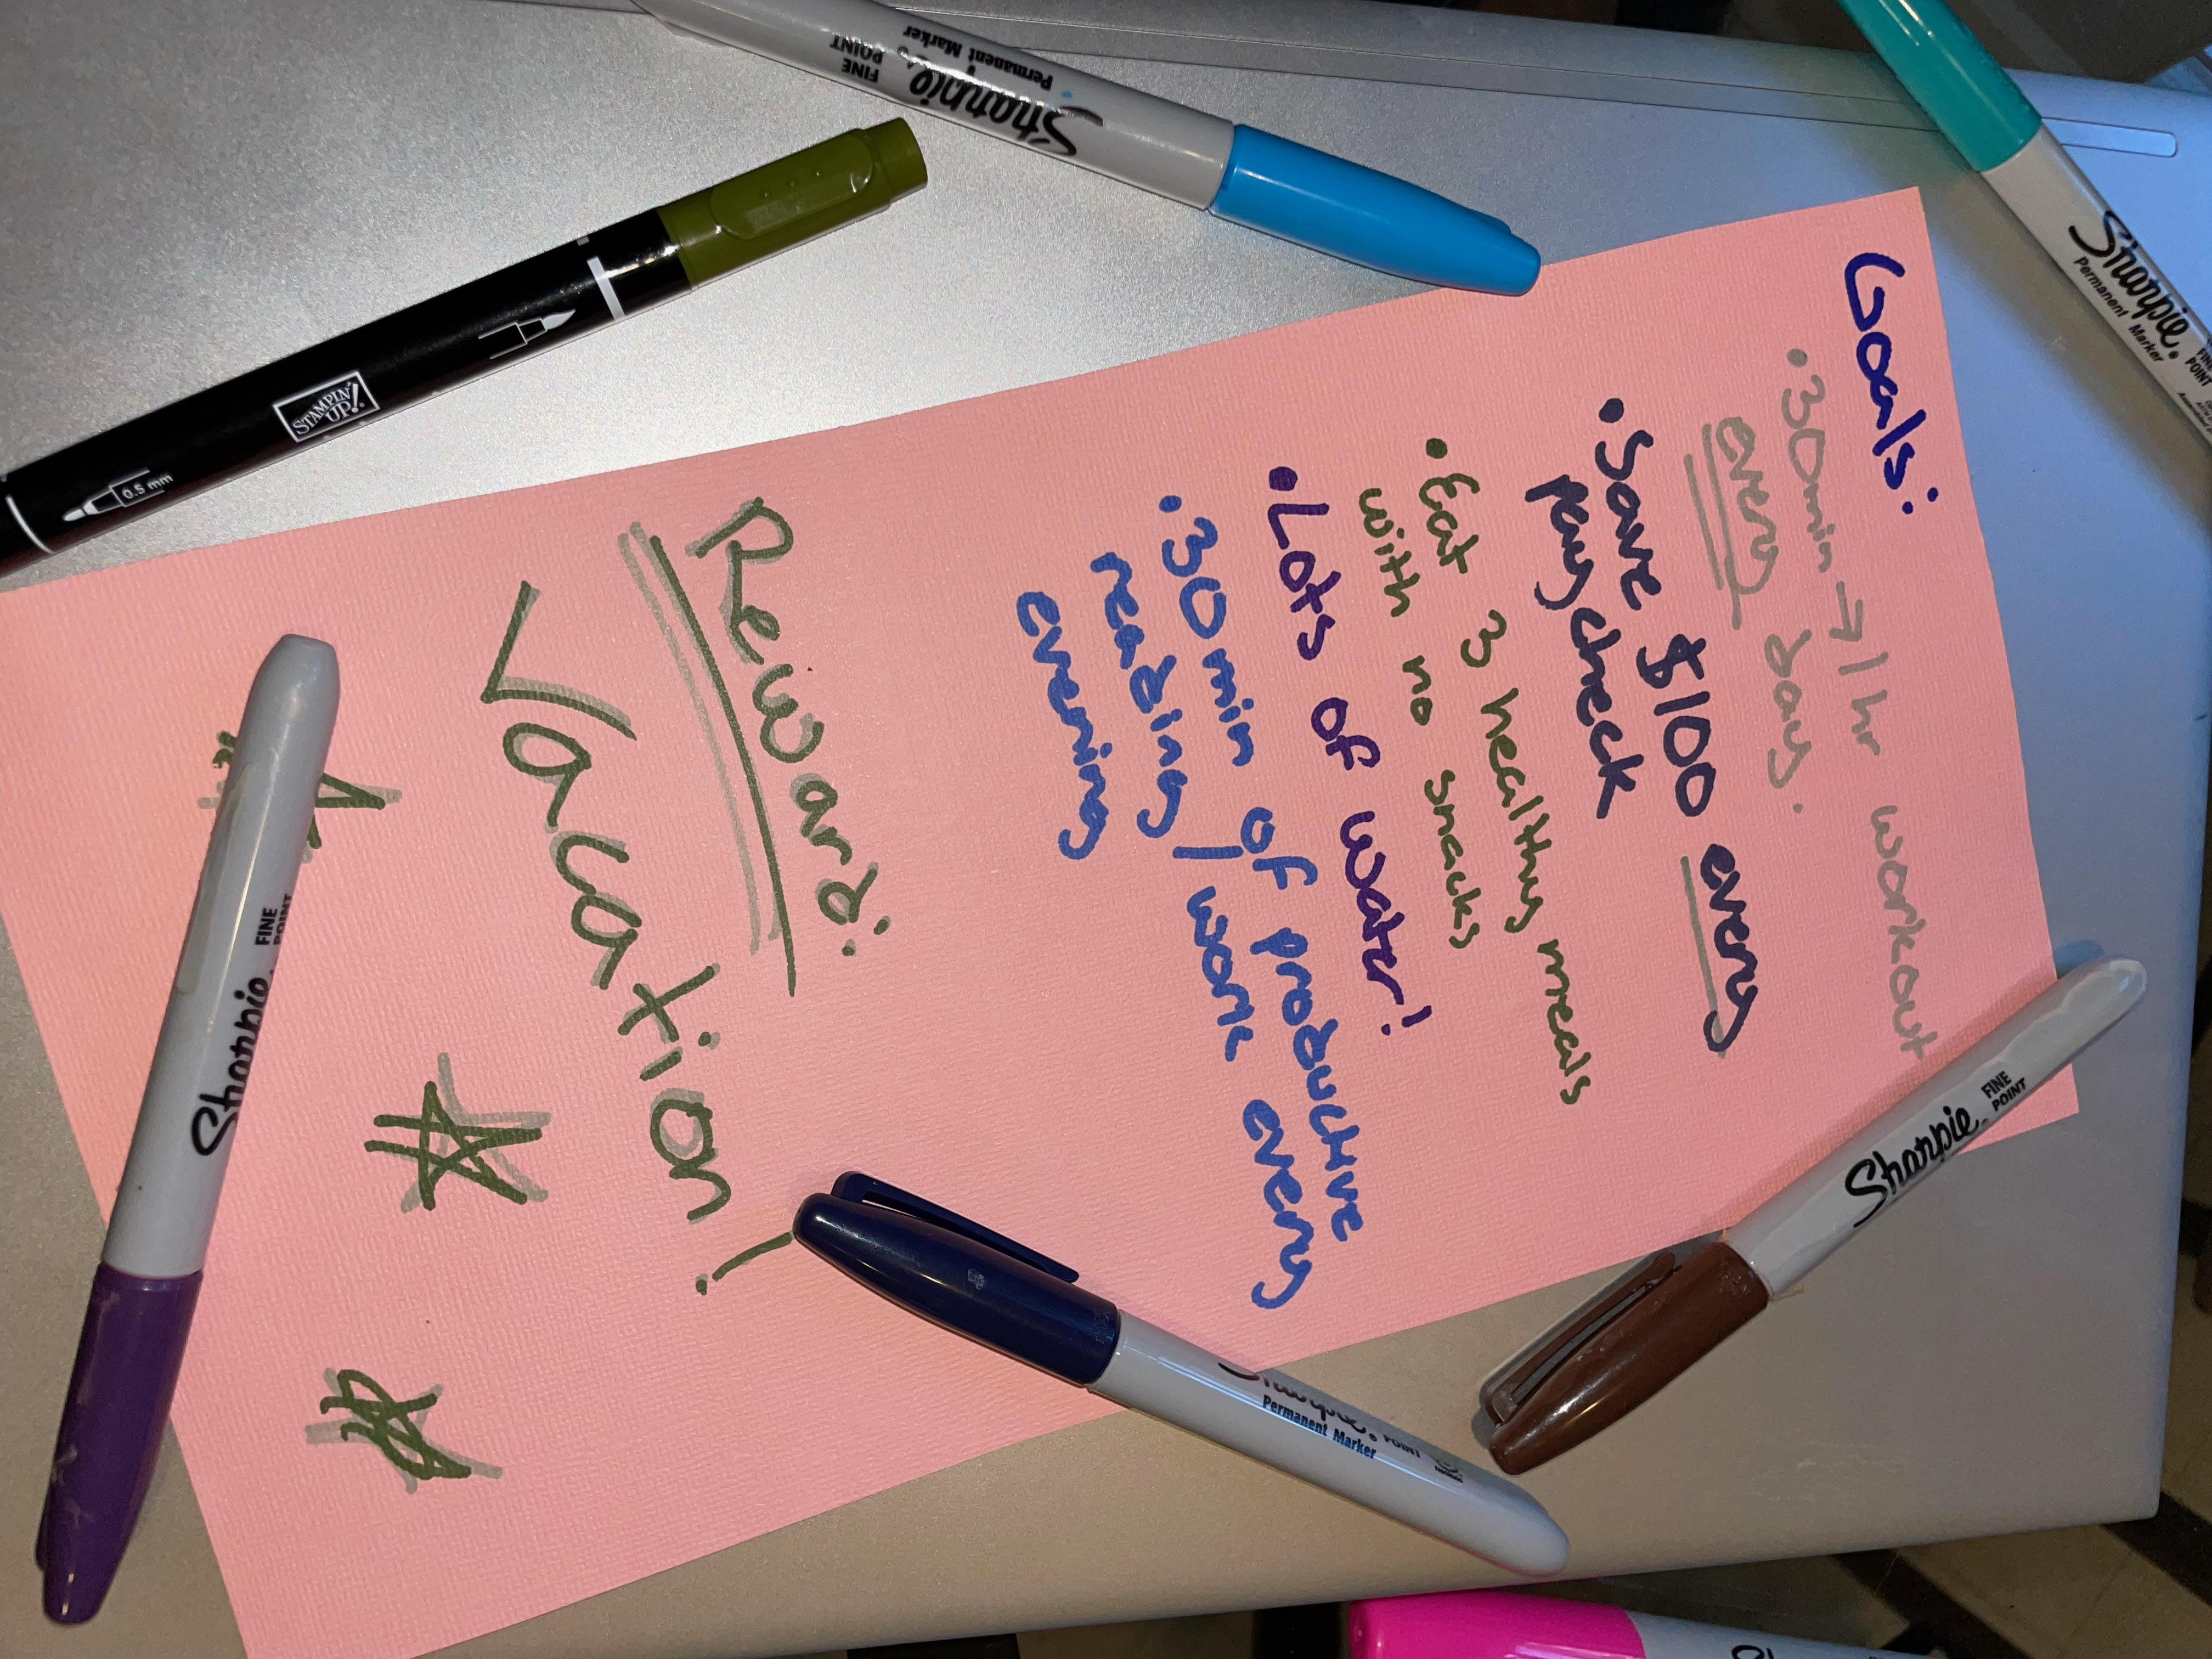 Goals:
• 30min → 1 hr workout
every day.
• Save $100 every
paycheck
• Eat 3 healthy meals
with no snacks
• Lots of water!
• 30min of productive
reading / work every
evening
Reward:
Vacation!
Sharpie
Permanent Marker
FINE
POINT
STAMPIN'
UP!
0.5 mm
Sharpie.
Permanent Marker
FINE
POINT
Sharpie.
FINE
POINT
Sharpie.
Permanent Marker
POINT
Sharpie
FINE
POINT